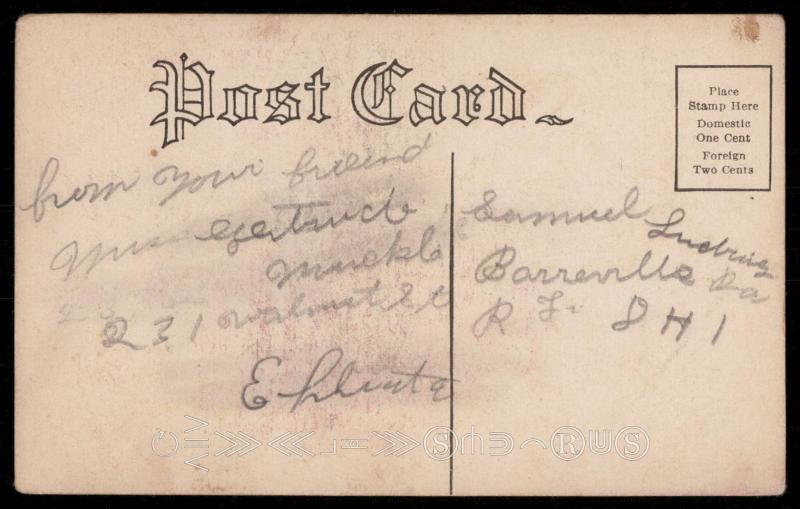 Post Card
Place
Stamp Here
Domestic
One Cent
Foreign
Two Cents
from your friend
Miss Gertrude
231 Walnut St
Ephrata
Samuel
Barreville Pa
R F D # 1